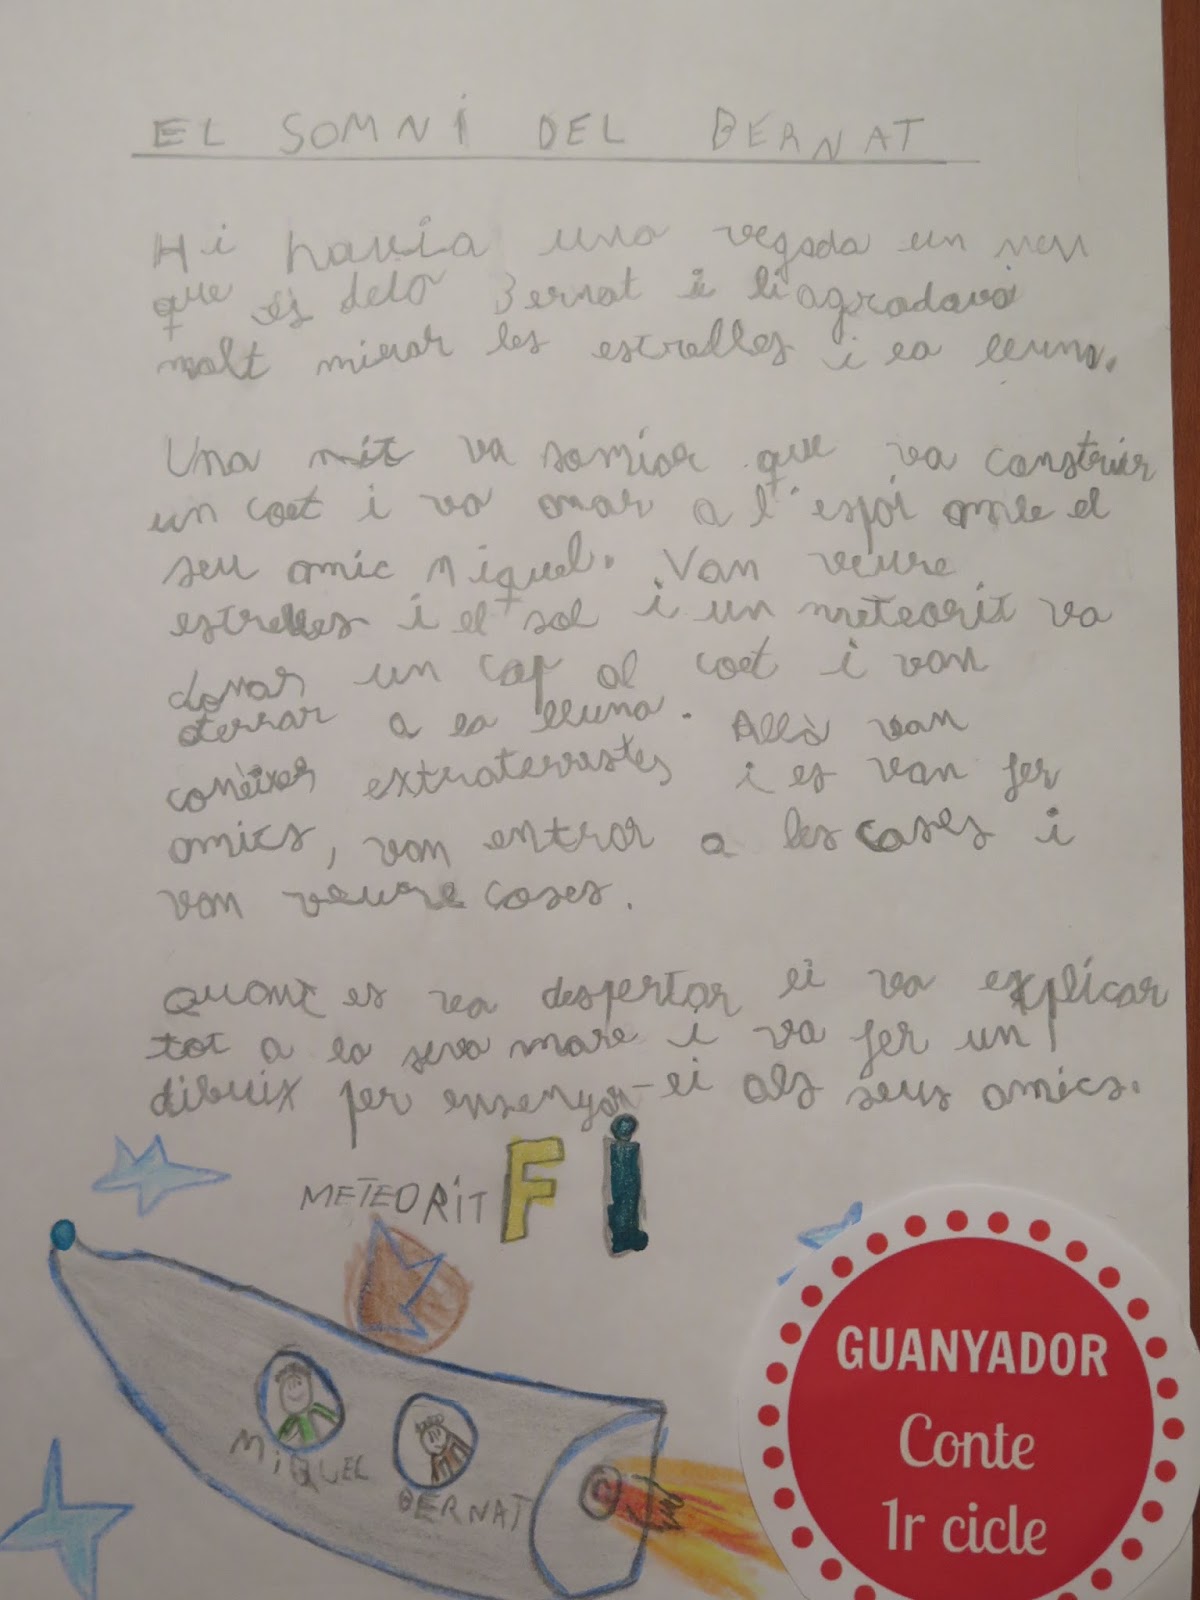 EL SOMNI DEL BERNAT
Hi havia una vegada un nen
que es deia Bernat i li agradava
molt mirar les estrelles i la lluna.
Una nit va somiar que va construir
un coet i va anar a l'espai amb el
seu amic Miquel. Van veure
estrelles i el sol i un meteorit va
donar un cop al coet i van
aterrar a la lluna. Allà van
conèixer extraterrestes i es van fer
amics, van entrar a les cases i
van veure coses.
Quant es va despertar li va explicar
tot a la seva mare i va fer un
dibuix per ensenyar-li als seus amics.
METEORIT
FI
MIQUEL
BERNAT
GUANYADOR
Conte
1r cicle